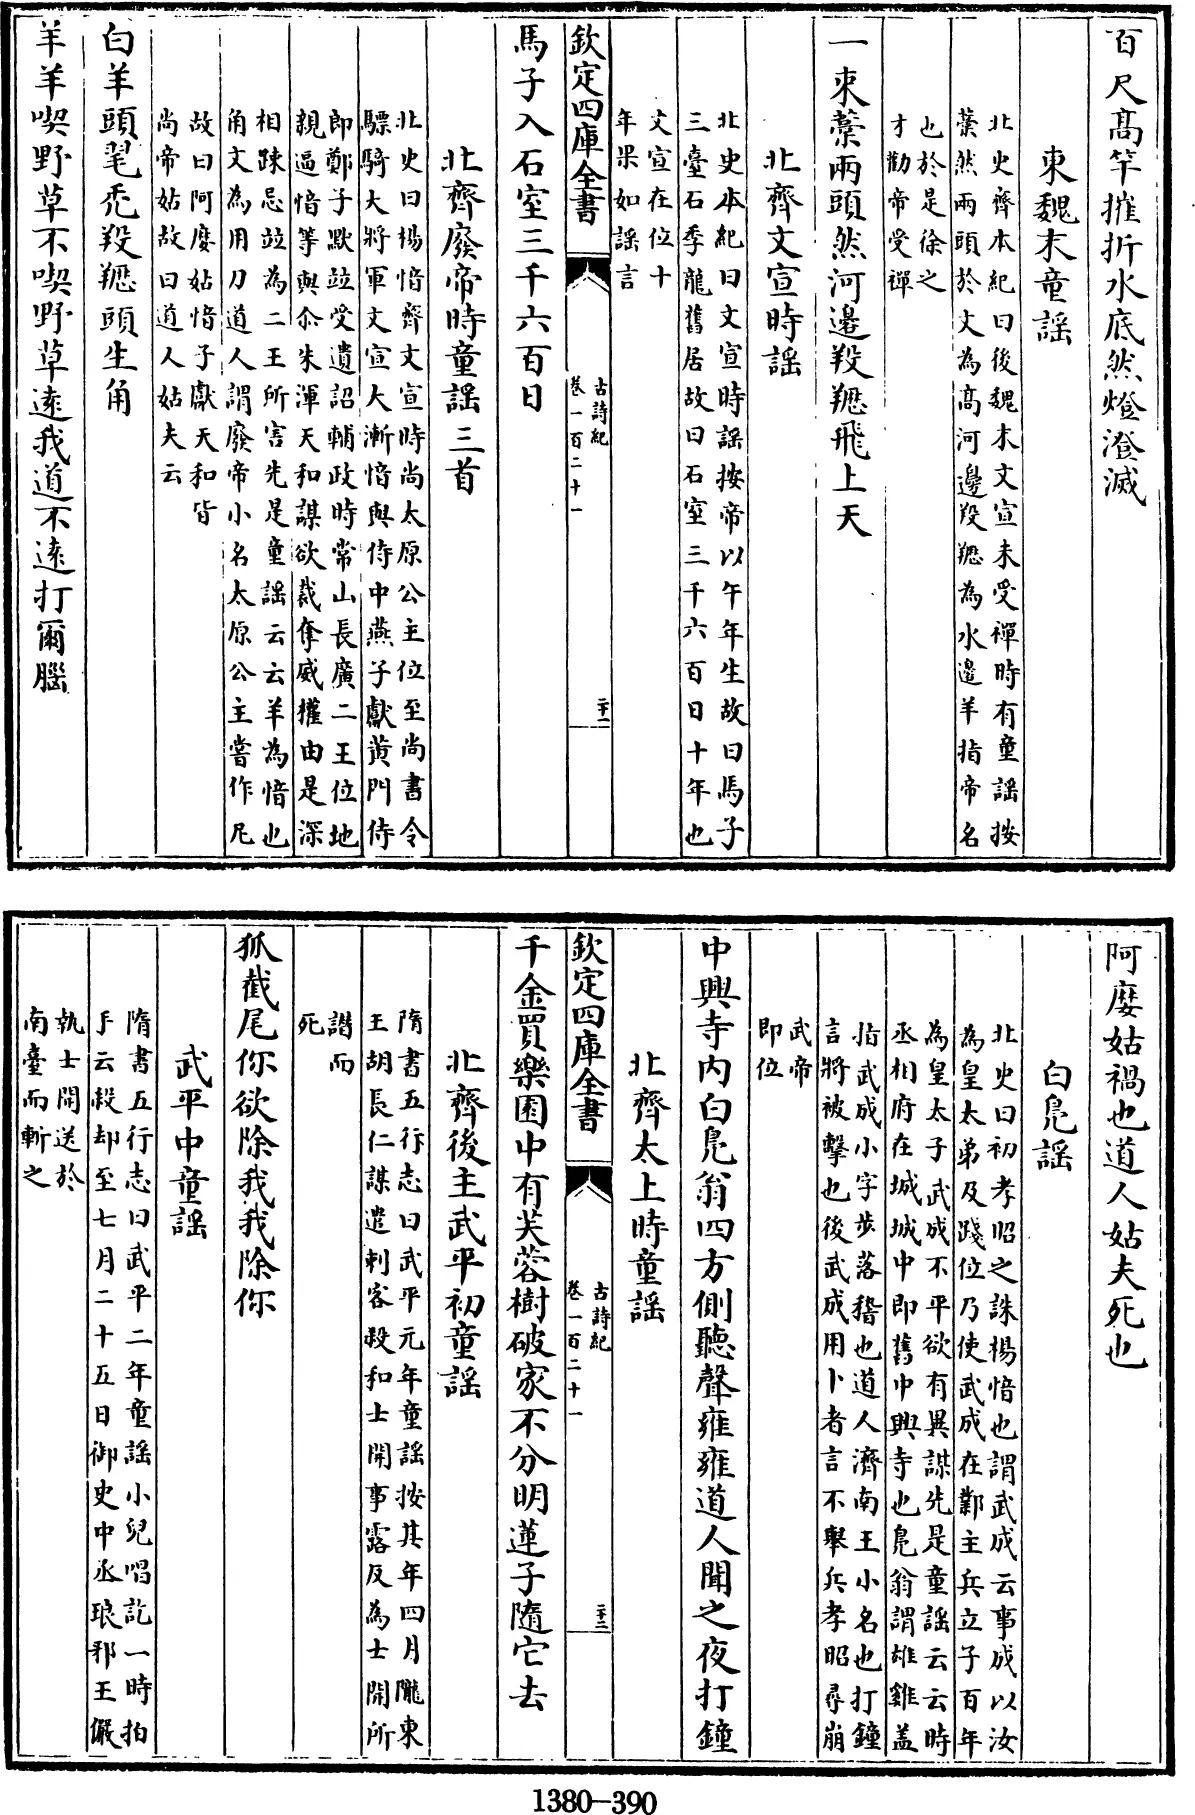 百尺髙竿摧折水底然燈澄滅
東魏末童謡
北史齊本紀曰後魏末文宣未受禪時有童謡按
藁然兩頭於文為髙河邊羖䍽為水邊羊指帝名
也於是徐之
才勸帝受禪
一束藁兩頭然河邊羖䍽飛上天
北齊文宣時謡
北史本紀曰文宣時謡按帝以午年生故曰馬子
三臺石季龍舊居故曰石室三千六百日十年也
文宣在位十
年果如謡言
欽定四庫全書
古詩紀
卷一百二十一
二十二
馬子入石室三千六百日
北齊廢帝時童謡三首
北史曰楊愔齊文宣時尚太原公主位至尚書令
驃騎大將軍文宣大漸愔與侍中燕子獻黄門侍
郎鄭子默竝受遺詔輔政時常山長廣二王位地
親逼愔等與尒朱渾天和謀欲裁奪威權由是深
相踈忌竝為二王所害先是童謡云云羊為愔也
角文為用刀道人謂廢帝小名太原公主嘗作尼
故曰阿麽姑愔子獻天和皆
尚帝姑故曰道人姑夫云
白羊頭毣秃羖䍽頭生角
羊羊喫野草不喫野草逺我道不逺打爾腦
阿麽姑禍也道人姑夫死也
白鳬謡
北史曰初孝昭之誅楊愔也謂武成云事成以汝
為皇太弟及踐位乃使武成在鄴主兵立子百年
為皇太子武成不平欲有異謀先是童謡云云時
丞相府在城城中即舊中興寺也鳬翁謂雄雞盖
指武成小字步落稽也道人濟南王小名也打鐘
言將被擊也後武成用卜者言不舉兵孝昭尋崩
武帝
即位
中興寺内白鳬翁四方側聽聲雍雍道人聞之夜打鐘
北齊太上時童謡
欽定四庫全書
古詩紀
卷一百二十一
二十三
千金買樂園中有芙蓉樹破家不分明蓮子隨它去
北齊後主武平初童謡
隋書五行志曰武平元年童謡按其年四月隴東
王胡長仁謀遣刺客殺和士開事露反為士開所
譖而
死
狐截尾你欲除我我除你
武平中童謡
隋書五行志曰武平二年童謡小兒唱訖一時拍
手云殺却至七月二十五日御史中丞琅邪王儼
執士開送於
南臺而斬之
1380-390